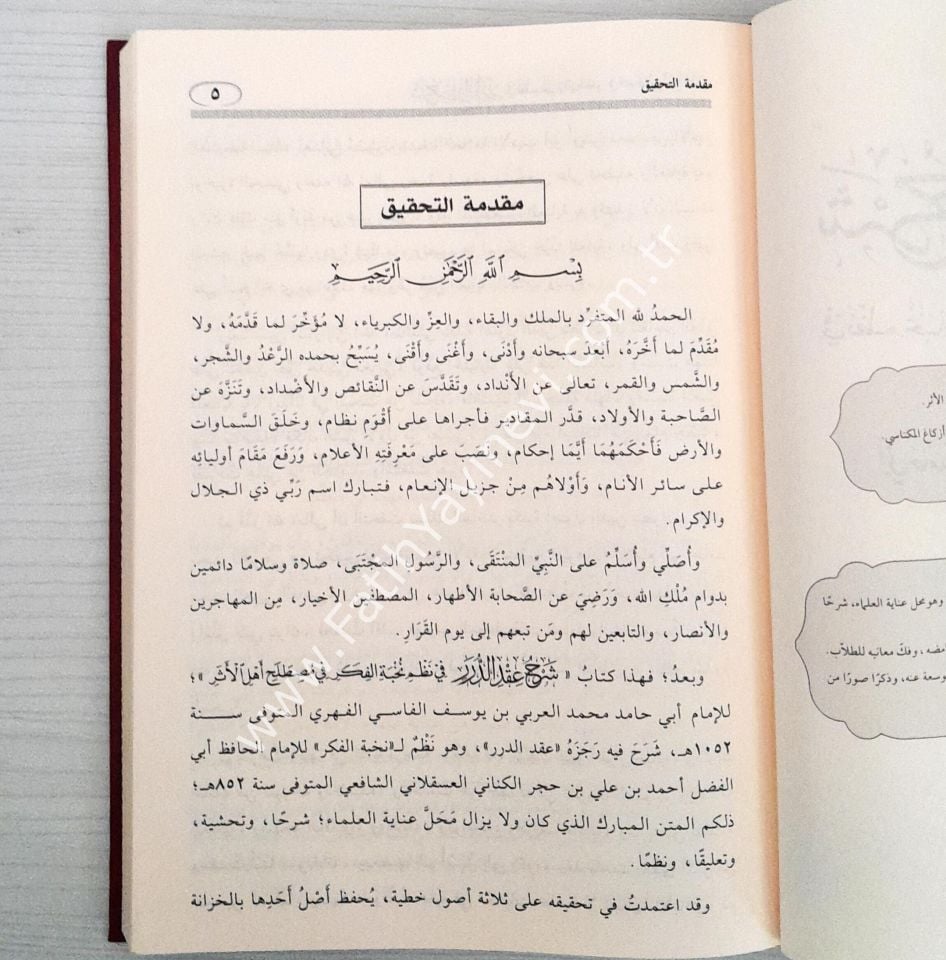 مقدمة التحقيق
٥
مقدمة التحقيق
بِسْمِ اللَّهِ الرَّحْمَٰنِ الرَّحِيمِ
الحمدُ لله المتفرِّد بالملك والبقاء، والعِزِّ والكبرياء، لا مُؤَخِّرَ لما قَدَّمَهُ، ولا
مُقَدِّمَ لما أَخَّرَهُ، أَبْعَدَ سبحانه وأَدْنَى، وأَغْنَى وأَقْنَى، يُسَبِّحُ بحمده الرَّعْدُ والشَّجر،
والشَّمس والقمر، تعالى عن الأَنْداد، وتَقَدَّسَ عن النَّقائص والأَضْداد، وتَنَزَّهَ عن
الصَّاحبة والأولاد، قدَّر المقادير فأجراها على أَقْوَمِ نظام، وخَلَقَ السَّماوات
والأرض فَأَحْكَمَهُمَا أَيَّمَا إحكام، ونَصَبَ على مَعْرِفَتِهِ الأعلام، ورَفَعَ مَقَامَ أوليائِه
على سائر الأنام، وَأَوْلاهُم مِنْ جزيل الإنعام، فتبارك اسم رَبِّي ذي الجلال
والإكرام.
وأُصَلِّي وأُسَلِّمُ على النَّبيِّ المنْتَقَى، والرَّسُولِ المجْتَبَى، صلاة وسلامًا دائمين
بدوام مُلْكِ الله، وَرَضِيَ عن الصَّحابة الأطهار، المصطفَين الأخيار، مِن المهاجرين
والأنصار، والتابعين لهم ومَن تبعهم إلى يوم القَرَارِ.
وبعدُ؛ فهذا كتابُ «شَرْحُ عِقْدِ الدُّرَرِ فِي نَظْمِ نُخْبَةِ الفِكَرِ فِي مُصْطَلَحِ أَهْلِ الأَثَرِ»؛
للإمام أبي حامد محمد العربي بن يوسف الفاسي الفهري المتوفى سنة
١٠٥٢هـ، شَرَحَ فيه رَجَزَهُ «عقد الدرر»، وهو نَظْمٌ لـ«نخبة الفكر» للإمام الحافظ أبي
الفضل أحمد بن علي بن حجر الكناني العسقلاني الشافعي المتوفى سنة ٨٥٢هـ؛
ذلكم المتن المبارك الذي كان ولا يزال مَحَلَّ عناية العلماء؛ شرحًا، وتحشية،
وتعليقًا، ونظمًا.
وقد اعتمدتُ في تحقيقه على ثلاثة أصول خطية، يُحفظ أَصْلُ أَحَدِها بالخزانة
الأثر.
أزكاغ المكناسي.
وهو محل عناية العلماء، شرحًا
امضه، وفكّ معانيه للطلاب.
وسعة عنه، وذكرًا صورًا من
www.FatihYayinevi.com.tr